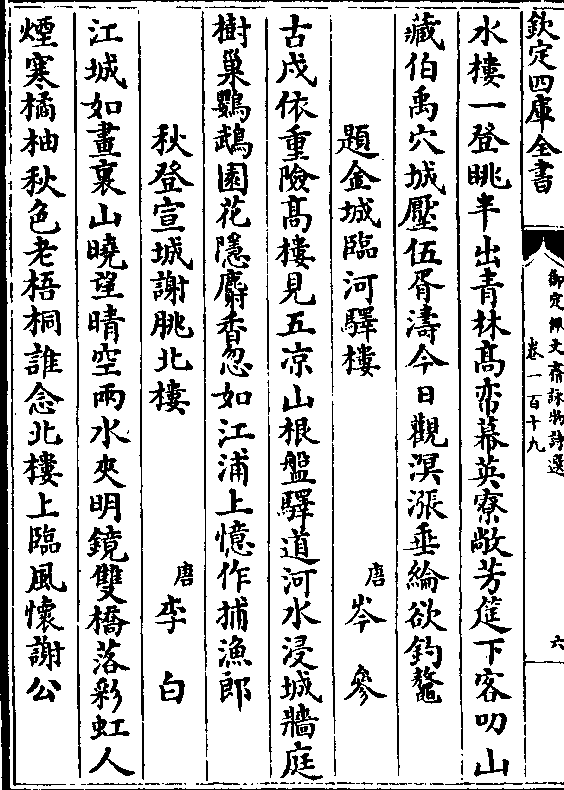 欽定四庫全書
御定佩文齋詠物詩選
卷一百十九
六
水樓一登眺半出青林高帟幕英寮敞芳筵下客叨山
藏伯禹穴城壓伍胥濤今日觀溟漲垂綸欲釣鼇
題金城臨河驛樓
唐岑參
古戍依重險高樓見五凉山根盤驛道河水浸城牆庭
樹巢鸚鵡園花隱麝香忽如江浦上憶作捕漁郎
秋登宣城謝脁北樓
唐李白
江城如畫裏山曉望晴空兩水夾明鏡雙橋落彩虹人
煙寒橘柚秋色老梧桐誰念北樓上臨風懷謝公